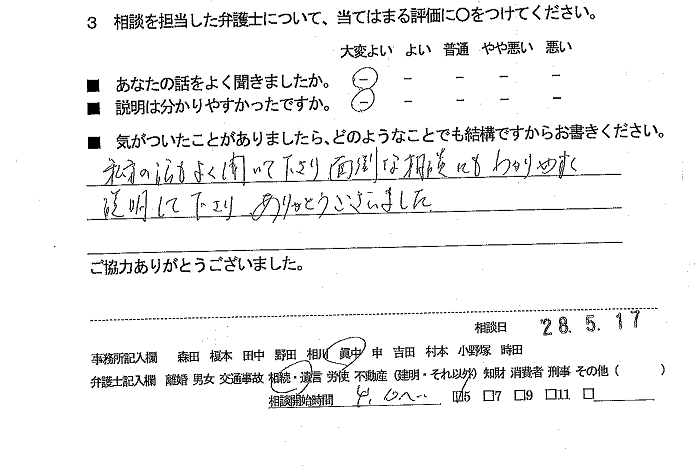 3 相談を担当した弁護士について、当てはまる評価に○をつけてください。
大変よい よい 普通 やや悪い 悪い
■ あなたの話をよく聞きましたか。 － － － － －
■ 説明は分かりやすかったですか。 － － － － －
■ 気がついたことがありましたら、どのようなことでも結構ですからお書きください。
の話もよく聞いて下さり 面倒な相談にも わかりやすく
説明して下さり ありがとうございました。
ご協力ありがとうございました。
相談日 '28.5.17
事務所記入欄 森田 榎本 田中 野田 相川 眞中 申 吉田 村本 小野塚 時田
弁護士記入欄 離婚 男女 交通事故 相続・遺言 労使 不動産（建明・それ以外）知財 消費者 刑事 その他（ ）
相談開始時間 □5 □7 □9 □11 □